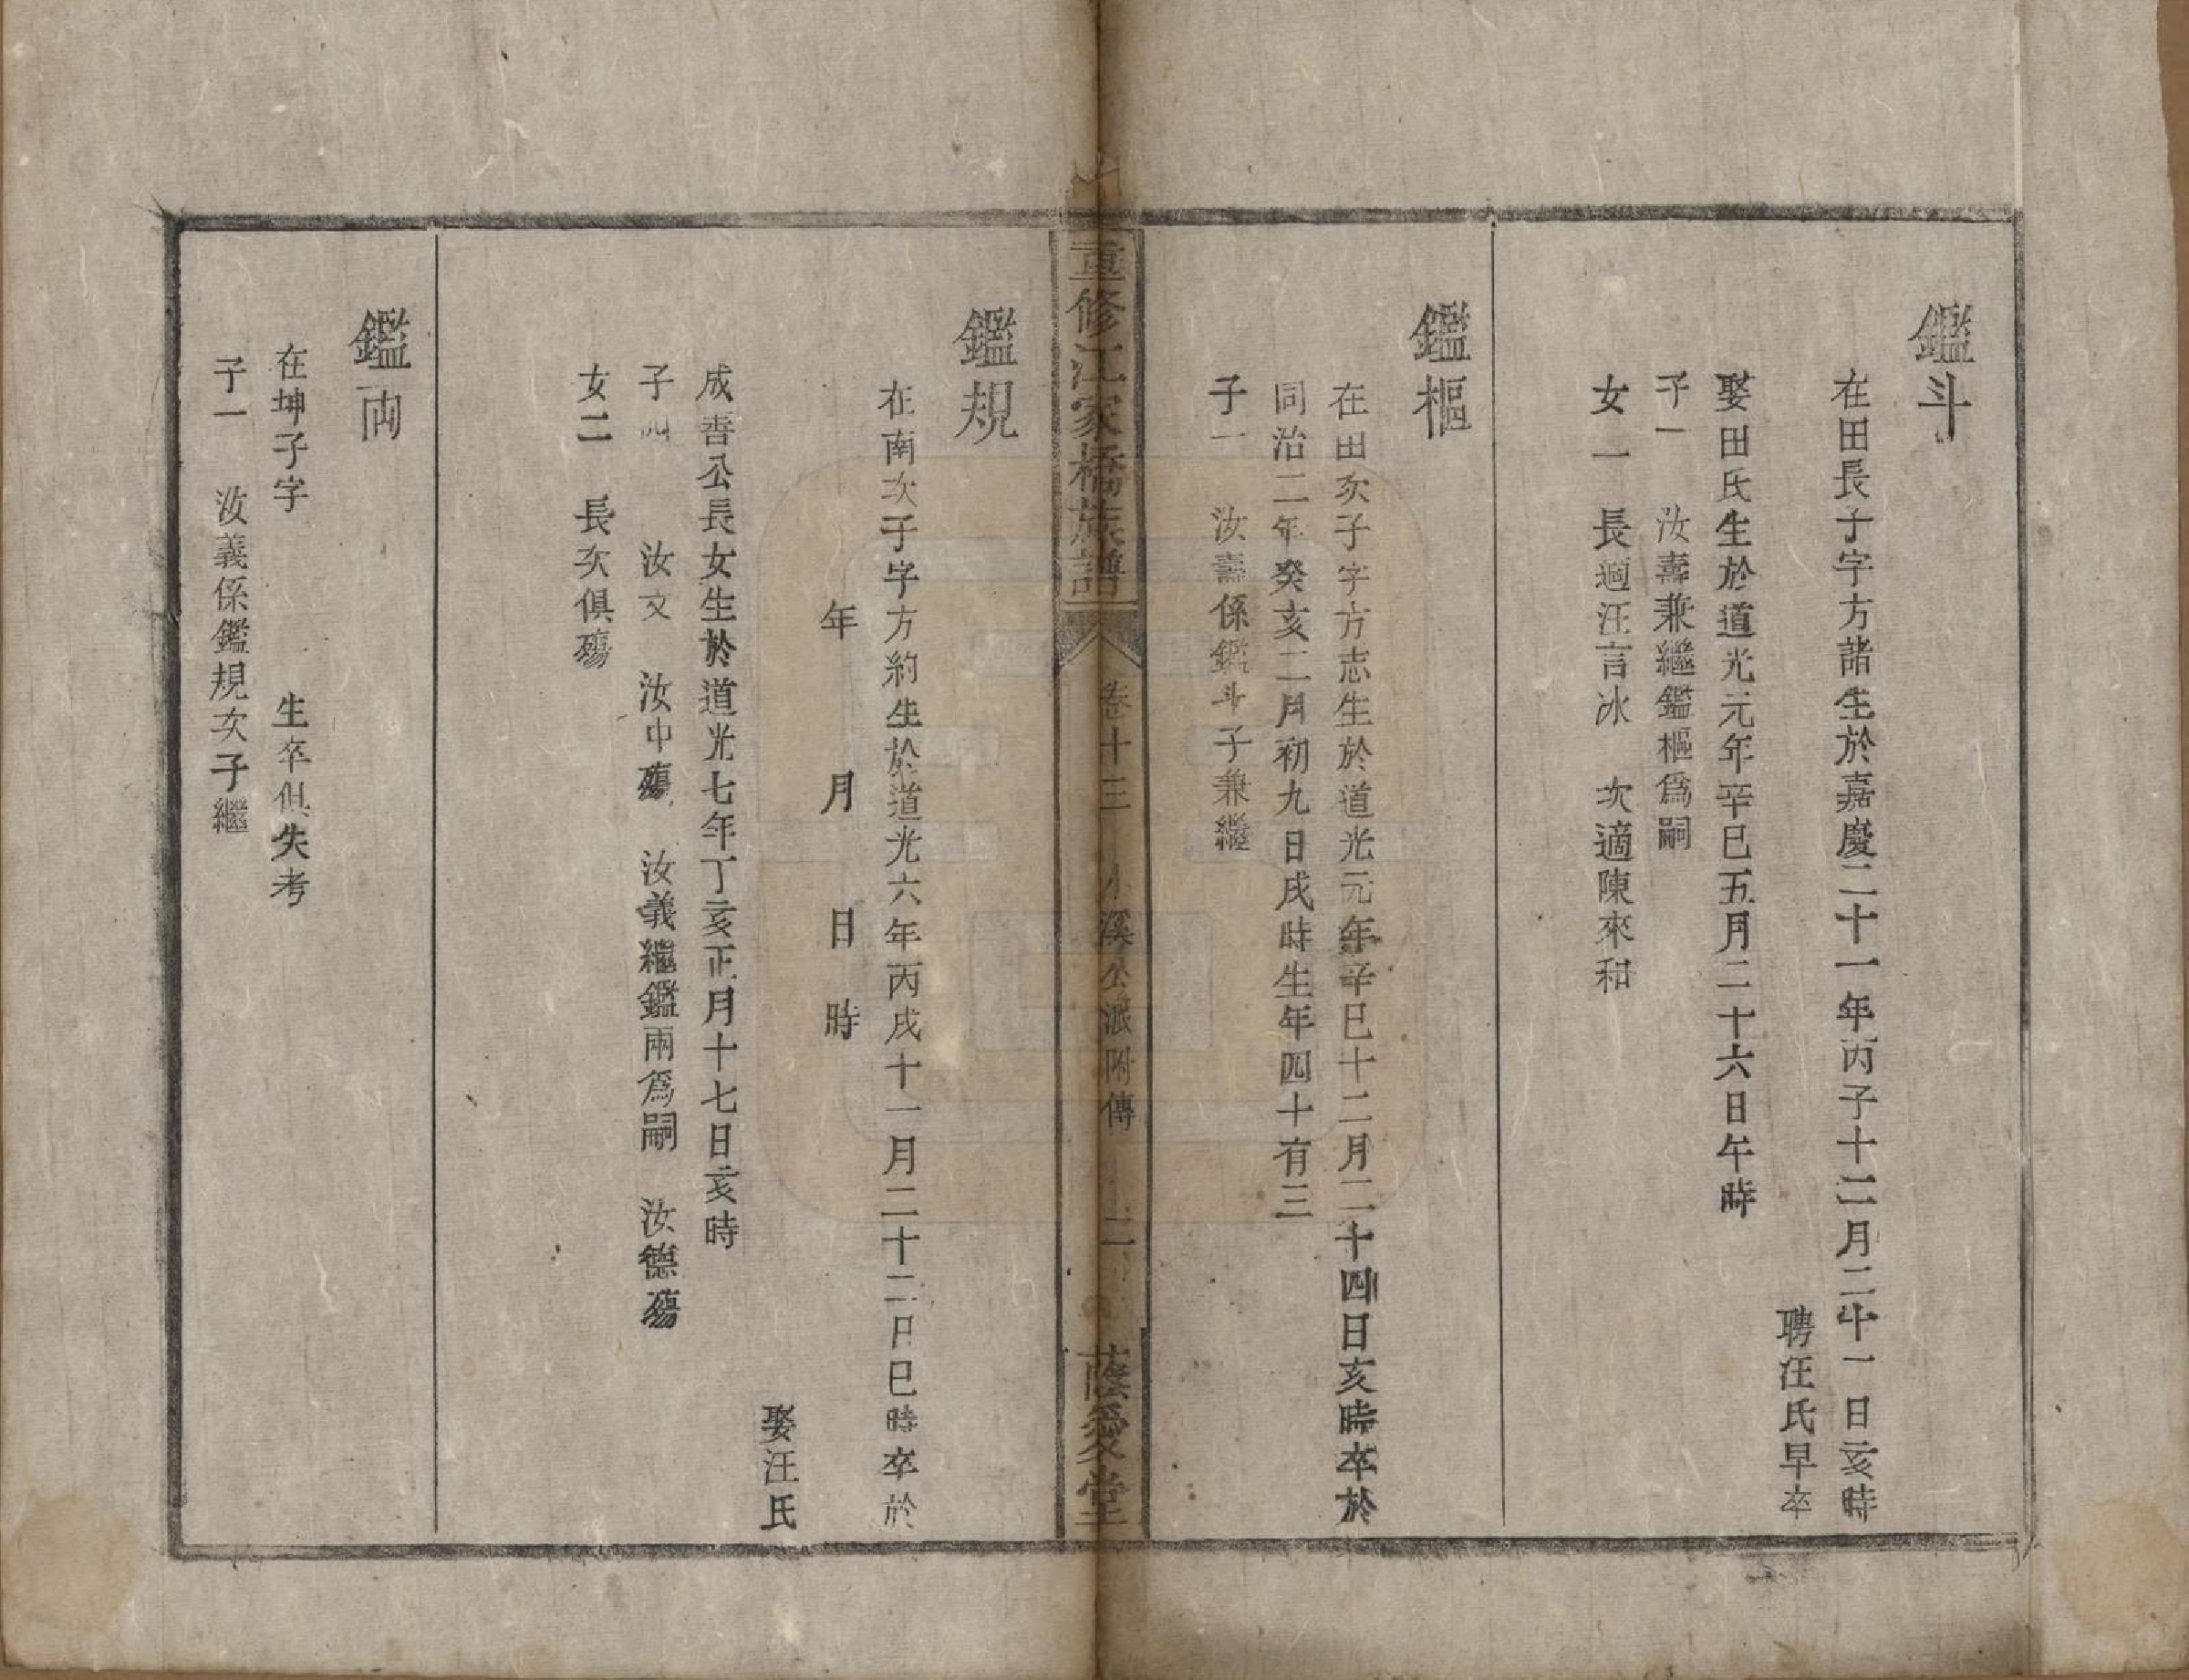 鑑斗
在田長子字方諸生於嘉慶二十一年丙子十二月二十一日亥時
聘汪氏早卒
娶田氏生於道光元年辛巳五月二十六日午時
子一　汝壽兼繼鑑樞爲嗣
女一　長適汪言冰　次適陳來和
鑑樞
在田次子字方志生於道光元年辛巳十二月二十四日亥時卒於
同治二年癸亥二月初九日戌時生年四十有三
子一　汝壽係鑑斗子兼繼
重修江家橋族譜　卷十三　小溪公派附傳　二　蔭愛堂
鑑規
在南次子字方約生於道光六年丙戌十一月二十二日巳時卒於
年　月　日　時
娶汪氏
成書公長女生於道光七年丁亥正月十七日亥時
子四　汝文　汝中殤　汝義繼鑑兩爲嗣　汝德殤
女二　長次俱殤
鑑両
在坤子字　生卒俱失考
子一　汝義係鑑規次子繼